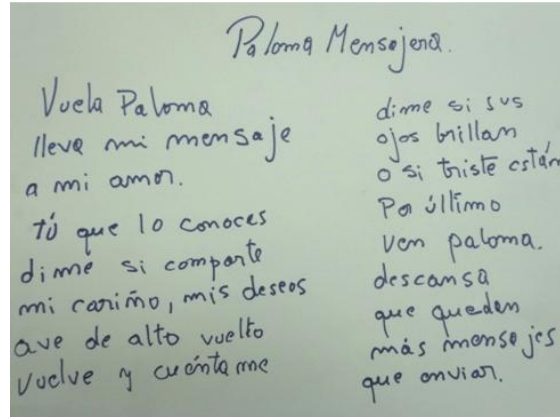 Paloma Mensajera.
Vuela Paloma
lleva mi mensaje
a mi amor.
tú que lo conoces
dime si comparte
mi cariño, mis deseos
ave de alto vuelto
vuelve y cuéntame
dime si sus
ojos brillan
o si triste están
Por último
ven paloma.
descansa
que queden
más mensajes
que enviar.